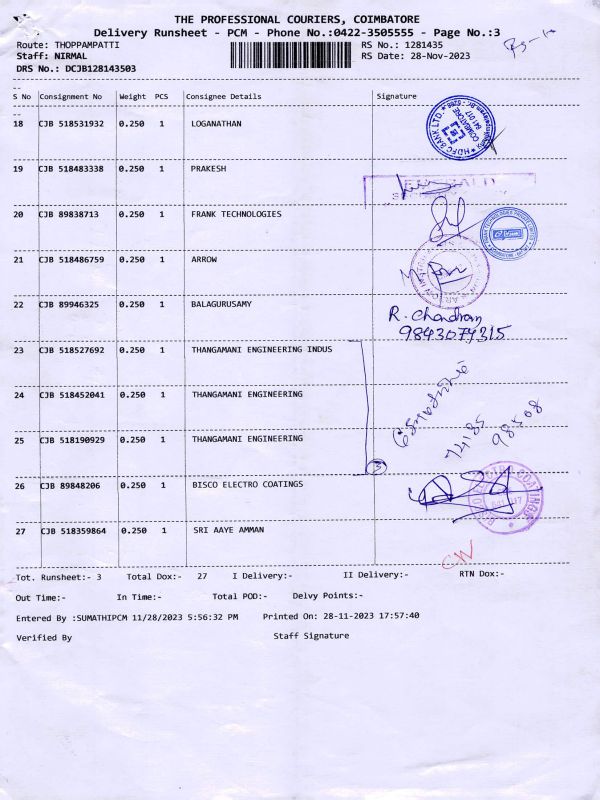 THE PROFESSIONAL COURIERS, COIMBATORE
Delivery Runsheet - PCM - Phone No.:0422-3505555 - Page No.:3
Route: THOPPAMPATTI RS No.: 1281435
Staff: NIRMAL RS Date: 28-Nov-2023
DRS No.: DCJB128143503
S No Consignment No Weight PCS Consignee Details Signature
18 CJB 518531932 0.250 1 LOGANATHAN
HDFC BANK LTD. COIMBATORE 641 017
19 CJB 518483338 0.250 1 PRAKESH
20 CJB 89838713 0.250 1 FRANK TECHNOLOGIES
21 CJB 518486759 0.250 1 ARROW
22 CJB 89946325 0.250 1 BALAGURUSAMY
R. Chandran
9843074315
23 CJB 518527692 0.250 1 THANGAMANI ENGINEERING INDUS
24 CJB 518452041 0.250 1 THANGAMANI ENGINEERING
74185
98508
25 CJB 518190929 0.250 1 THANGAMANI ENGINEERING
3
26 CJB 89848206 0.250 1 BISCO ELECTRO COATINGS
27 CJB 518359864 0.250 1 SRI AAYE AMMAN
CW
Tot. Runsheet:- 3 Total Dox:- 27 I Delivery:- II Delivery:- RTN Dox:-
Out Time:- In Time:- Total POD:- Delvy Points:-
Entered By :SUMATHIPCM 11/28/2023 5:56:32 PM Printed On: 28-11-2023 17:57:40
Verified By Staff Signature